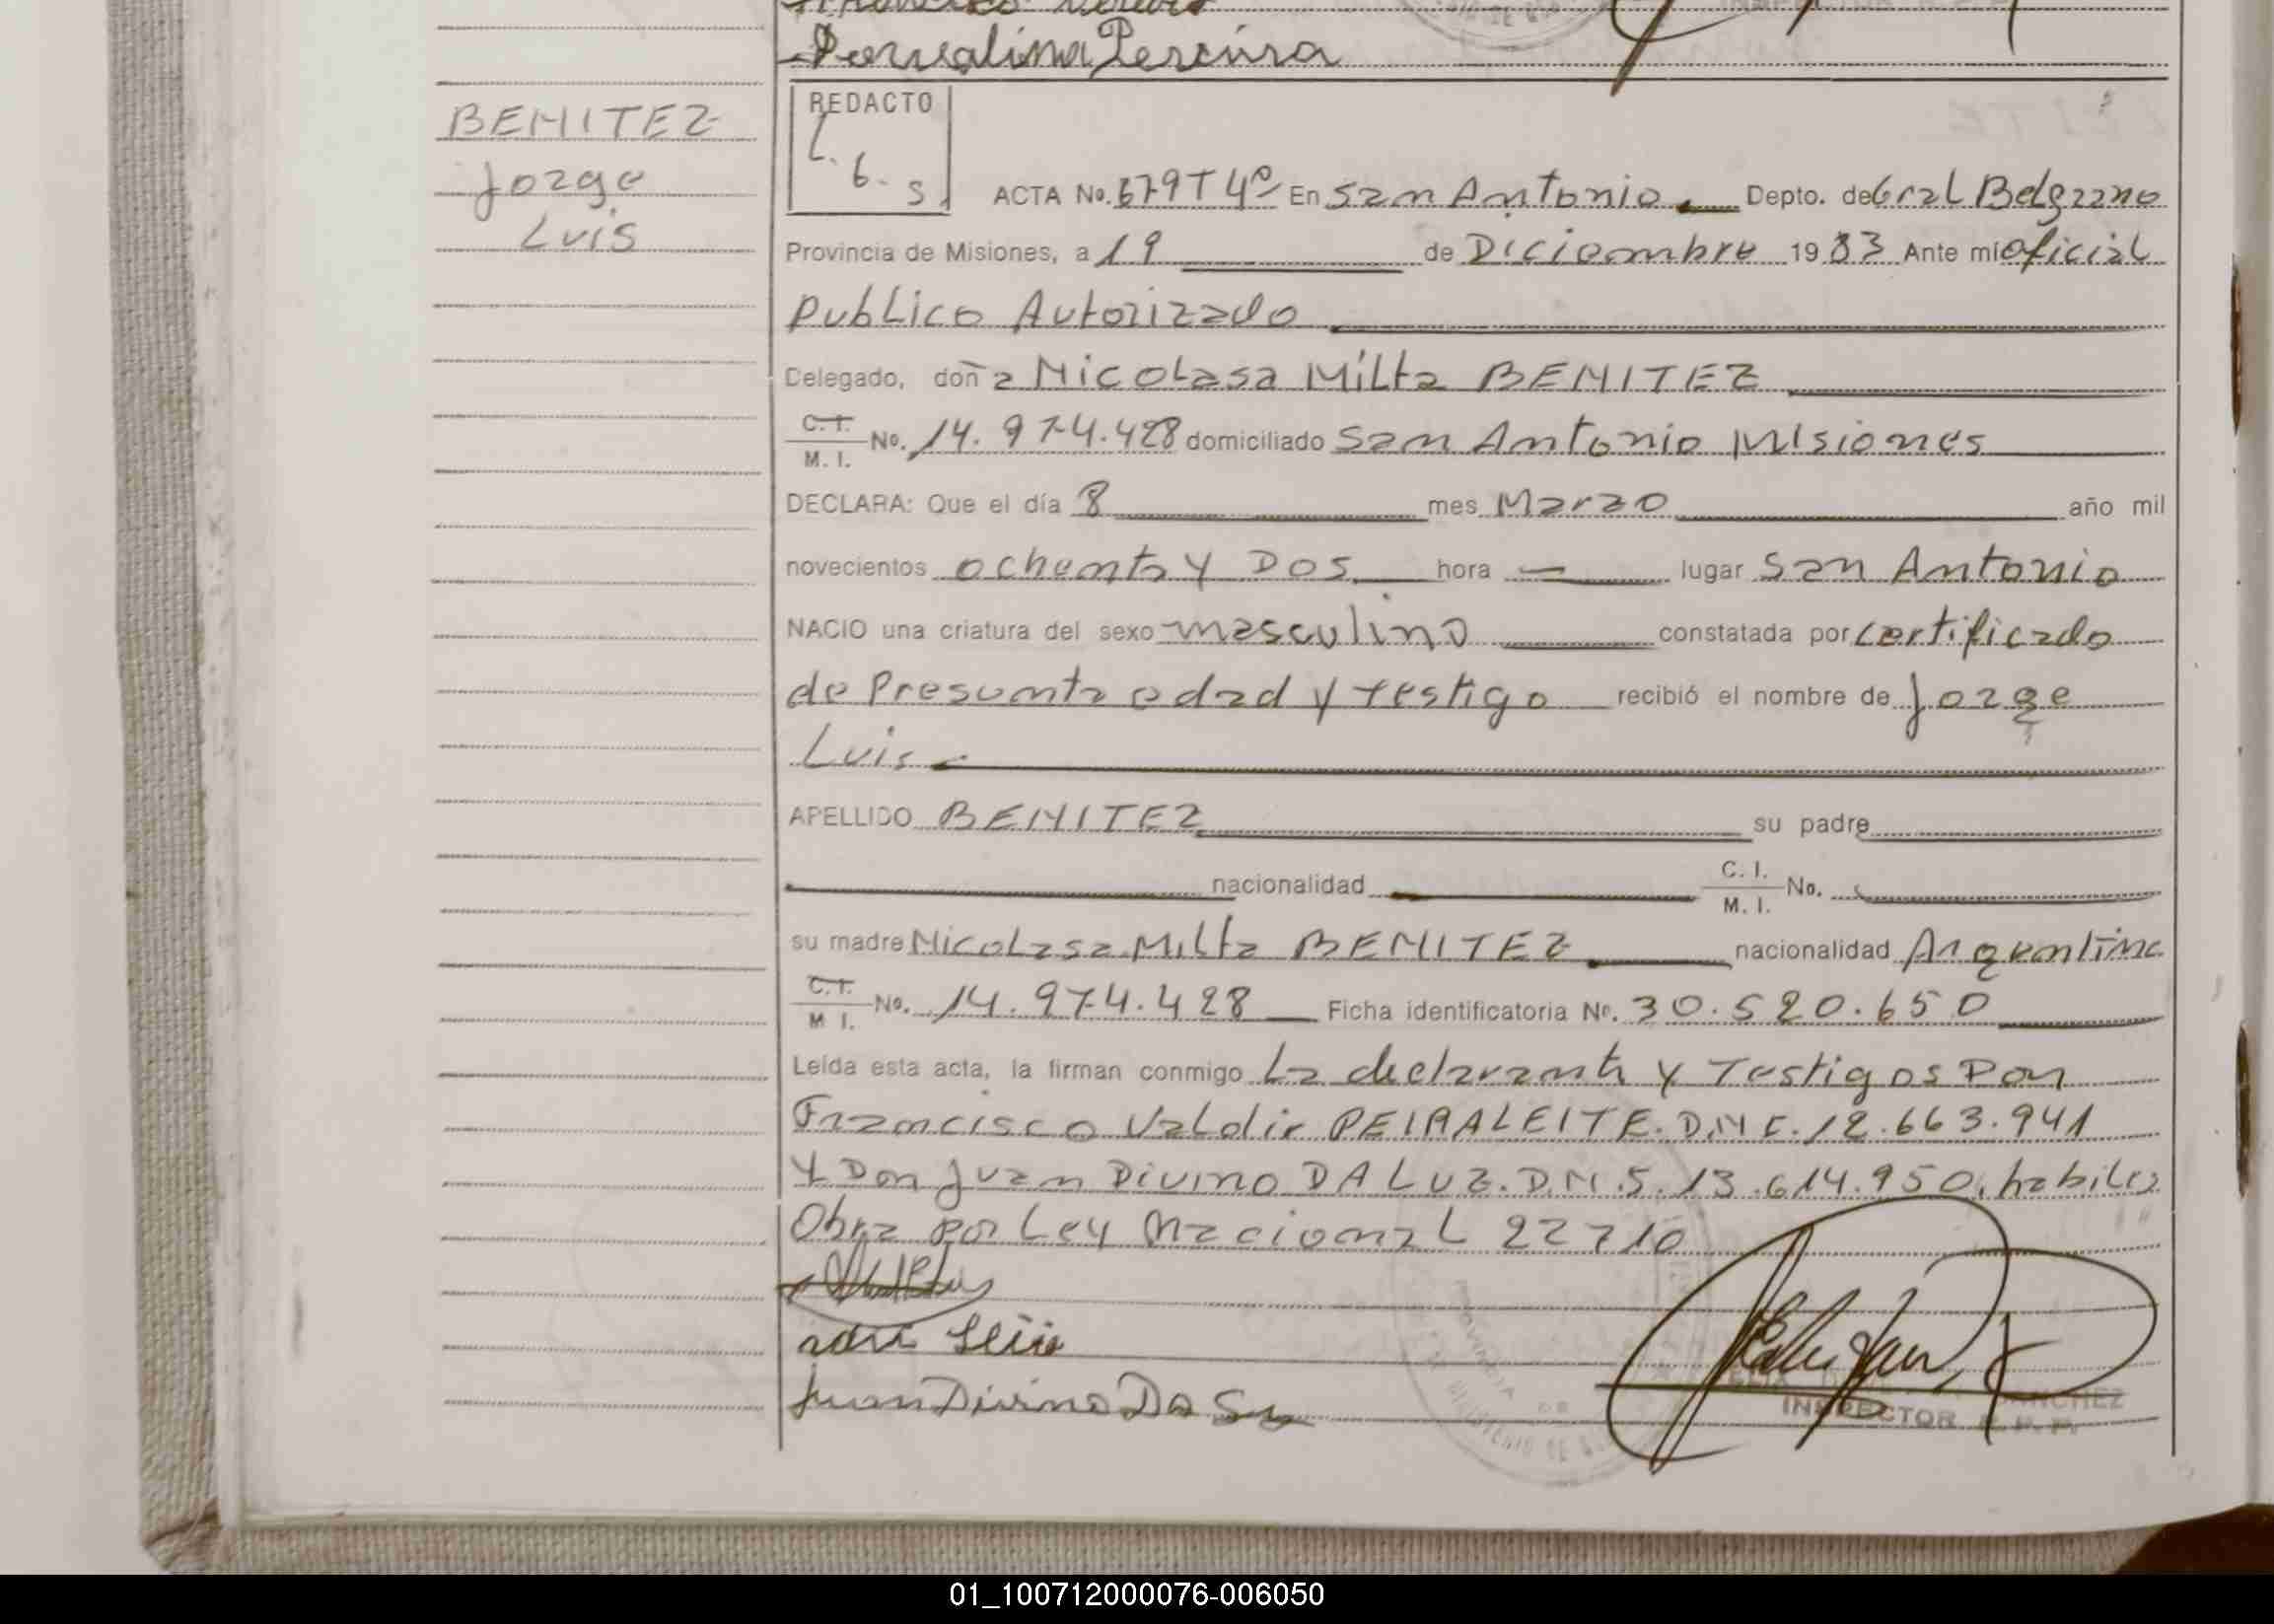 Pereira
BENITEZ
Jorge
Luis
REDACTO
L.
6. S.
ACTA No. 679 T 4º En San Antonio Depto. de Gral Belgrano
Provincia de Misiones, a 19 de Diciembre 1983 Ante mí oficial
publico Autorizado
Delegado, doña Nicolasa Milta BENITEZ
C.I. M. I. No. 14.974.428 domiciliado San Antonio Misiones
DECLARA: Que el día 8 mes Marzo año mil
novecientos ochenta y Dos hora — lugar San Antonio
NACIO una criatura del sexo masculino constatada por certificado
de Presunta edad y testigo recibió el nombre de Jorge
Luis
APELLIDO BENITEZ su padre
nacionalidad C. I. M. I. No.
su madre Nicolasa Milta BENITEZ nacionalidad Argentina
C.I. M I. No. 14.974.428 Ficha identificatoria Nº. 30.520.650
Leída esta acta, la firman conmigo La declarante y Testigos Don
Francisco Valdir PEIRALEITE. D.N I. 12.663.941
Y Don Juan Divino DA LUZ. D.N.I. 13.614.950. habiles
Obra por Ley Nacional 22710
Juan Divino Da
INSPECTOR
01_100712000076-006050